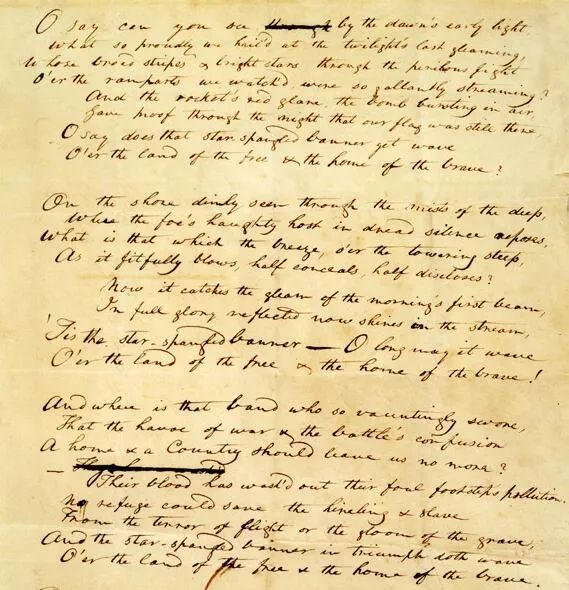 O say can you see ~~through~~ by the dawn's early light,
What so proudly we hail'd at the twilight's last gleaming,
Whose broad stripes & bright stars through the perilous fight
O'er the ramparts we watch'd, were so gallantly streaming?
And the rocket's red glare, the bomb bursting in air,
Gave proof through the night that our flag was still there
O say does that star-spangled banner yet wave
O'er the land of the free & the home of the brave?
On the shore dimly seen through the mists of the deep,
Where the foe's haughty host in dread silence reposes,
What is that which the breeze, o'er the towering steep,
As it fitfully blows, half conceals, half discloses?
Now it catches the gleam of the morning's first beam,
In full glory reflected now shines in the stream,
'Tis the star-spangled banner — O long may it wave
O'er the land of the free & the home of the brave!
And where is that band who so vauntingly swore,
That the havoc of war & the battle's confusion
A home & a Country should leave us no more?
—
Their blood has wash'd out their foul footstep's pollution.
No refuge could save the hireling & slave
From the terror of flight or the gloom of the grave,
And the star-spangled banner in triumph doth wave
O'er the land of the free & the home of the brave.